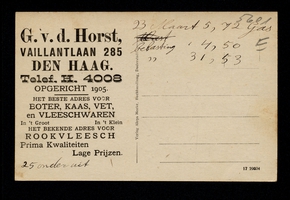 G. v. d. Horst,
VAILLANTLAAN 285
DEN HAAG.
Telef. H. 4008
OPGERICHT 1905.
HET BESTE ADRES VOOR
BOTER, KAAS, VET,
en VLEESCHWAREN
In 't Groot In 't Klein
HET BEKENDE ADRES VOOR
ROOKVLEESCH
Prima Kwaliteiten
Lage Prijzen.
23 Maart 5,72 Gas
Belasting 4,50 E
" 31,53